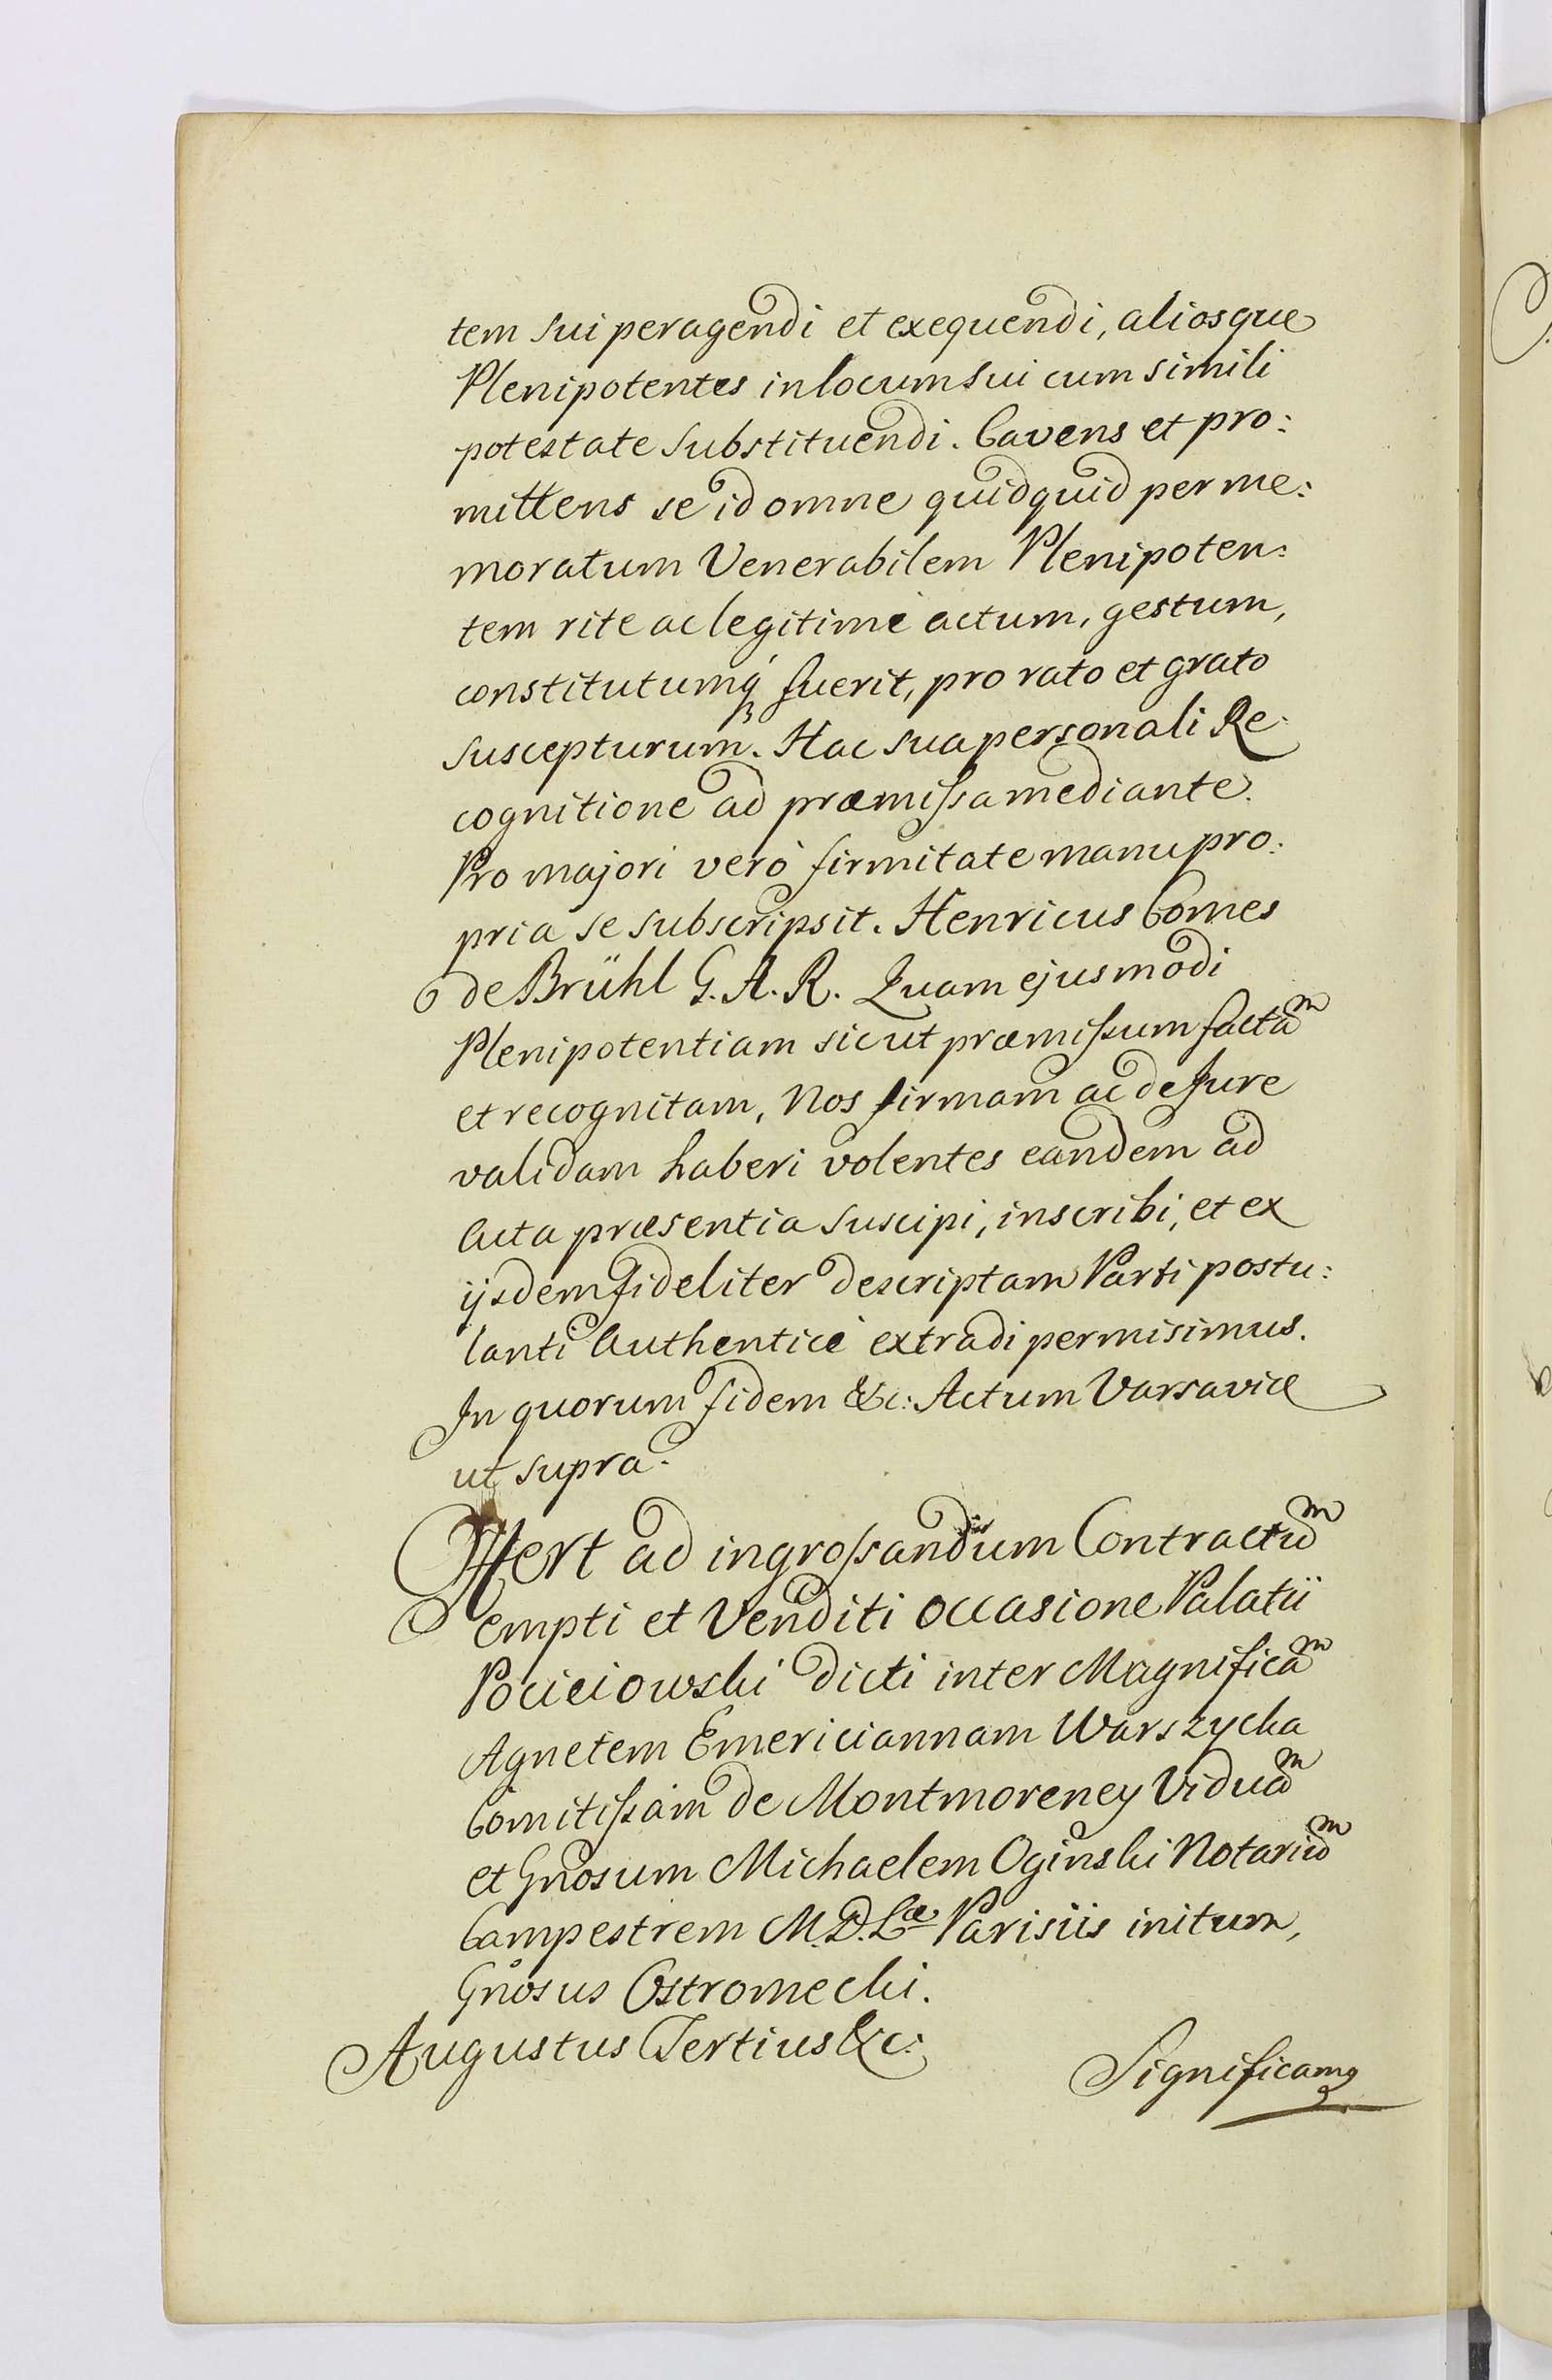 tem sui peragendi et exequendi, aliosque
Plenipotentes in locum sui cum simili
potestate substituendi. Cavens et pro:
mittens se id omne quidquid per me:
moratum Venerabilem Plenipoten:
tem rite ac legitimè actum, gestum,
constitutumq́ fuerit, pro rato et grato
suscepturum. Hac sua personali Re
cognitione ad præmissa mediante.
Pro majori verò firmitate manu pro:
pria se subscripsit. Henricus Comes
de Brühl G. A. R. Quam ejusmodi
Plenipotentiam sicut præmissum factaᵐ
et recognitam, Nos firmam ac de Jure
validam haberi volentes eandem ad
Acta præsentia suscipi, inscribi, et ex
ijsdem fideliter descriptam Parti postu:
lanti Authenticè extradi permisimus.
In quorum fidem &c: Actum Varsaviæ
ut supra.
Offert ad ingrossandum Contractuᵐ
empti et Venditi occasione Palatii
Pociciowski dicti inter Magnificaᵐ
Agnetem Emericiannam Warszycka
Comitissam de Montmoreney Viduaᵐ
et Gnosum Michaelem Oginski Notariuᵐ
Campestrem M. D. Læ Parisiis initum,
Gnosus Ostromecki.
Augustus Tertius &c:
Significamꝰ